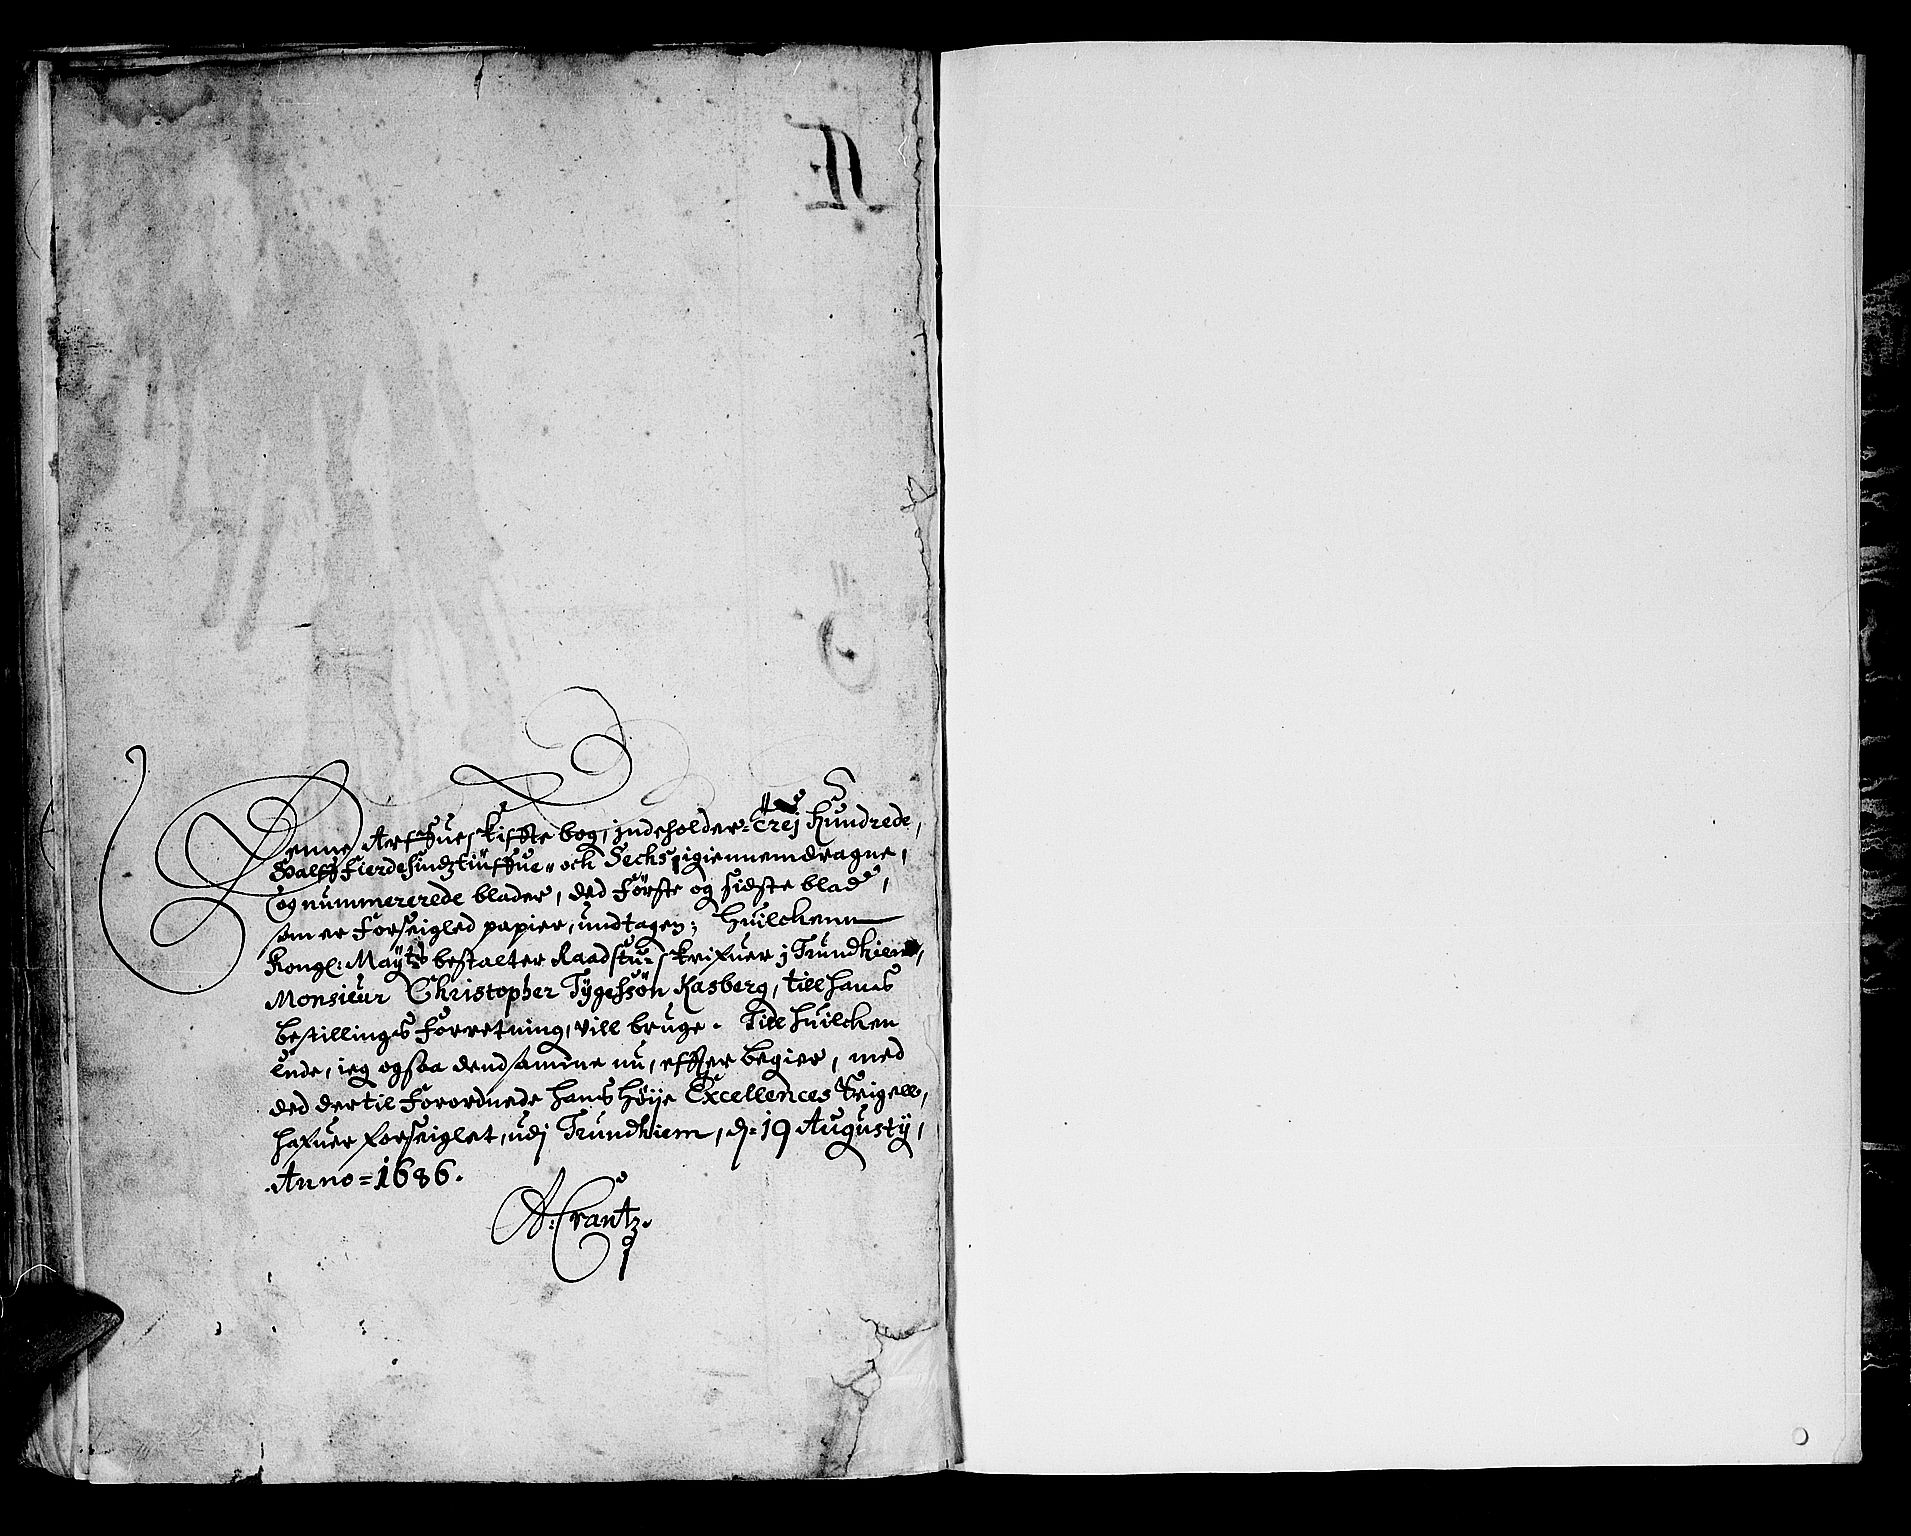 Denne Arffue skiffte bog, jndeholder Trej Hundrede,
Halff Fierdesindztiuffue och Sechs igiennemdragne,
og nummererede blader, ded Förste og sidste blad,
som er Forseigled papier, undtagen; Huilchenn
Kongl: Maÿts bestalter Raadstu- skrifuer j Trundhiem,
Monsieur Christopher Tÿgessön Kasberg, till hans
bestillings Forretning, vill bruge. Till huilchen
Ende, ieg ogsaa dend samme nu, effter begier, med
ded dertil Forordnede hans Höije Excellences Seigell,
hafuer forseiglet, udj Trundhiem, d: 19 Augustÿ,
Anno = 1686.
A: Crantz.